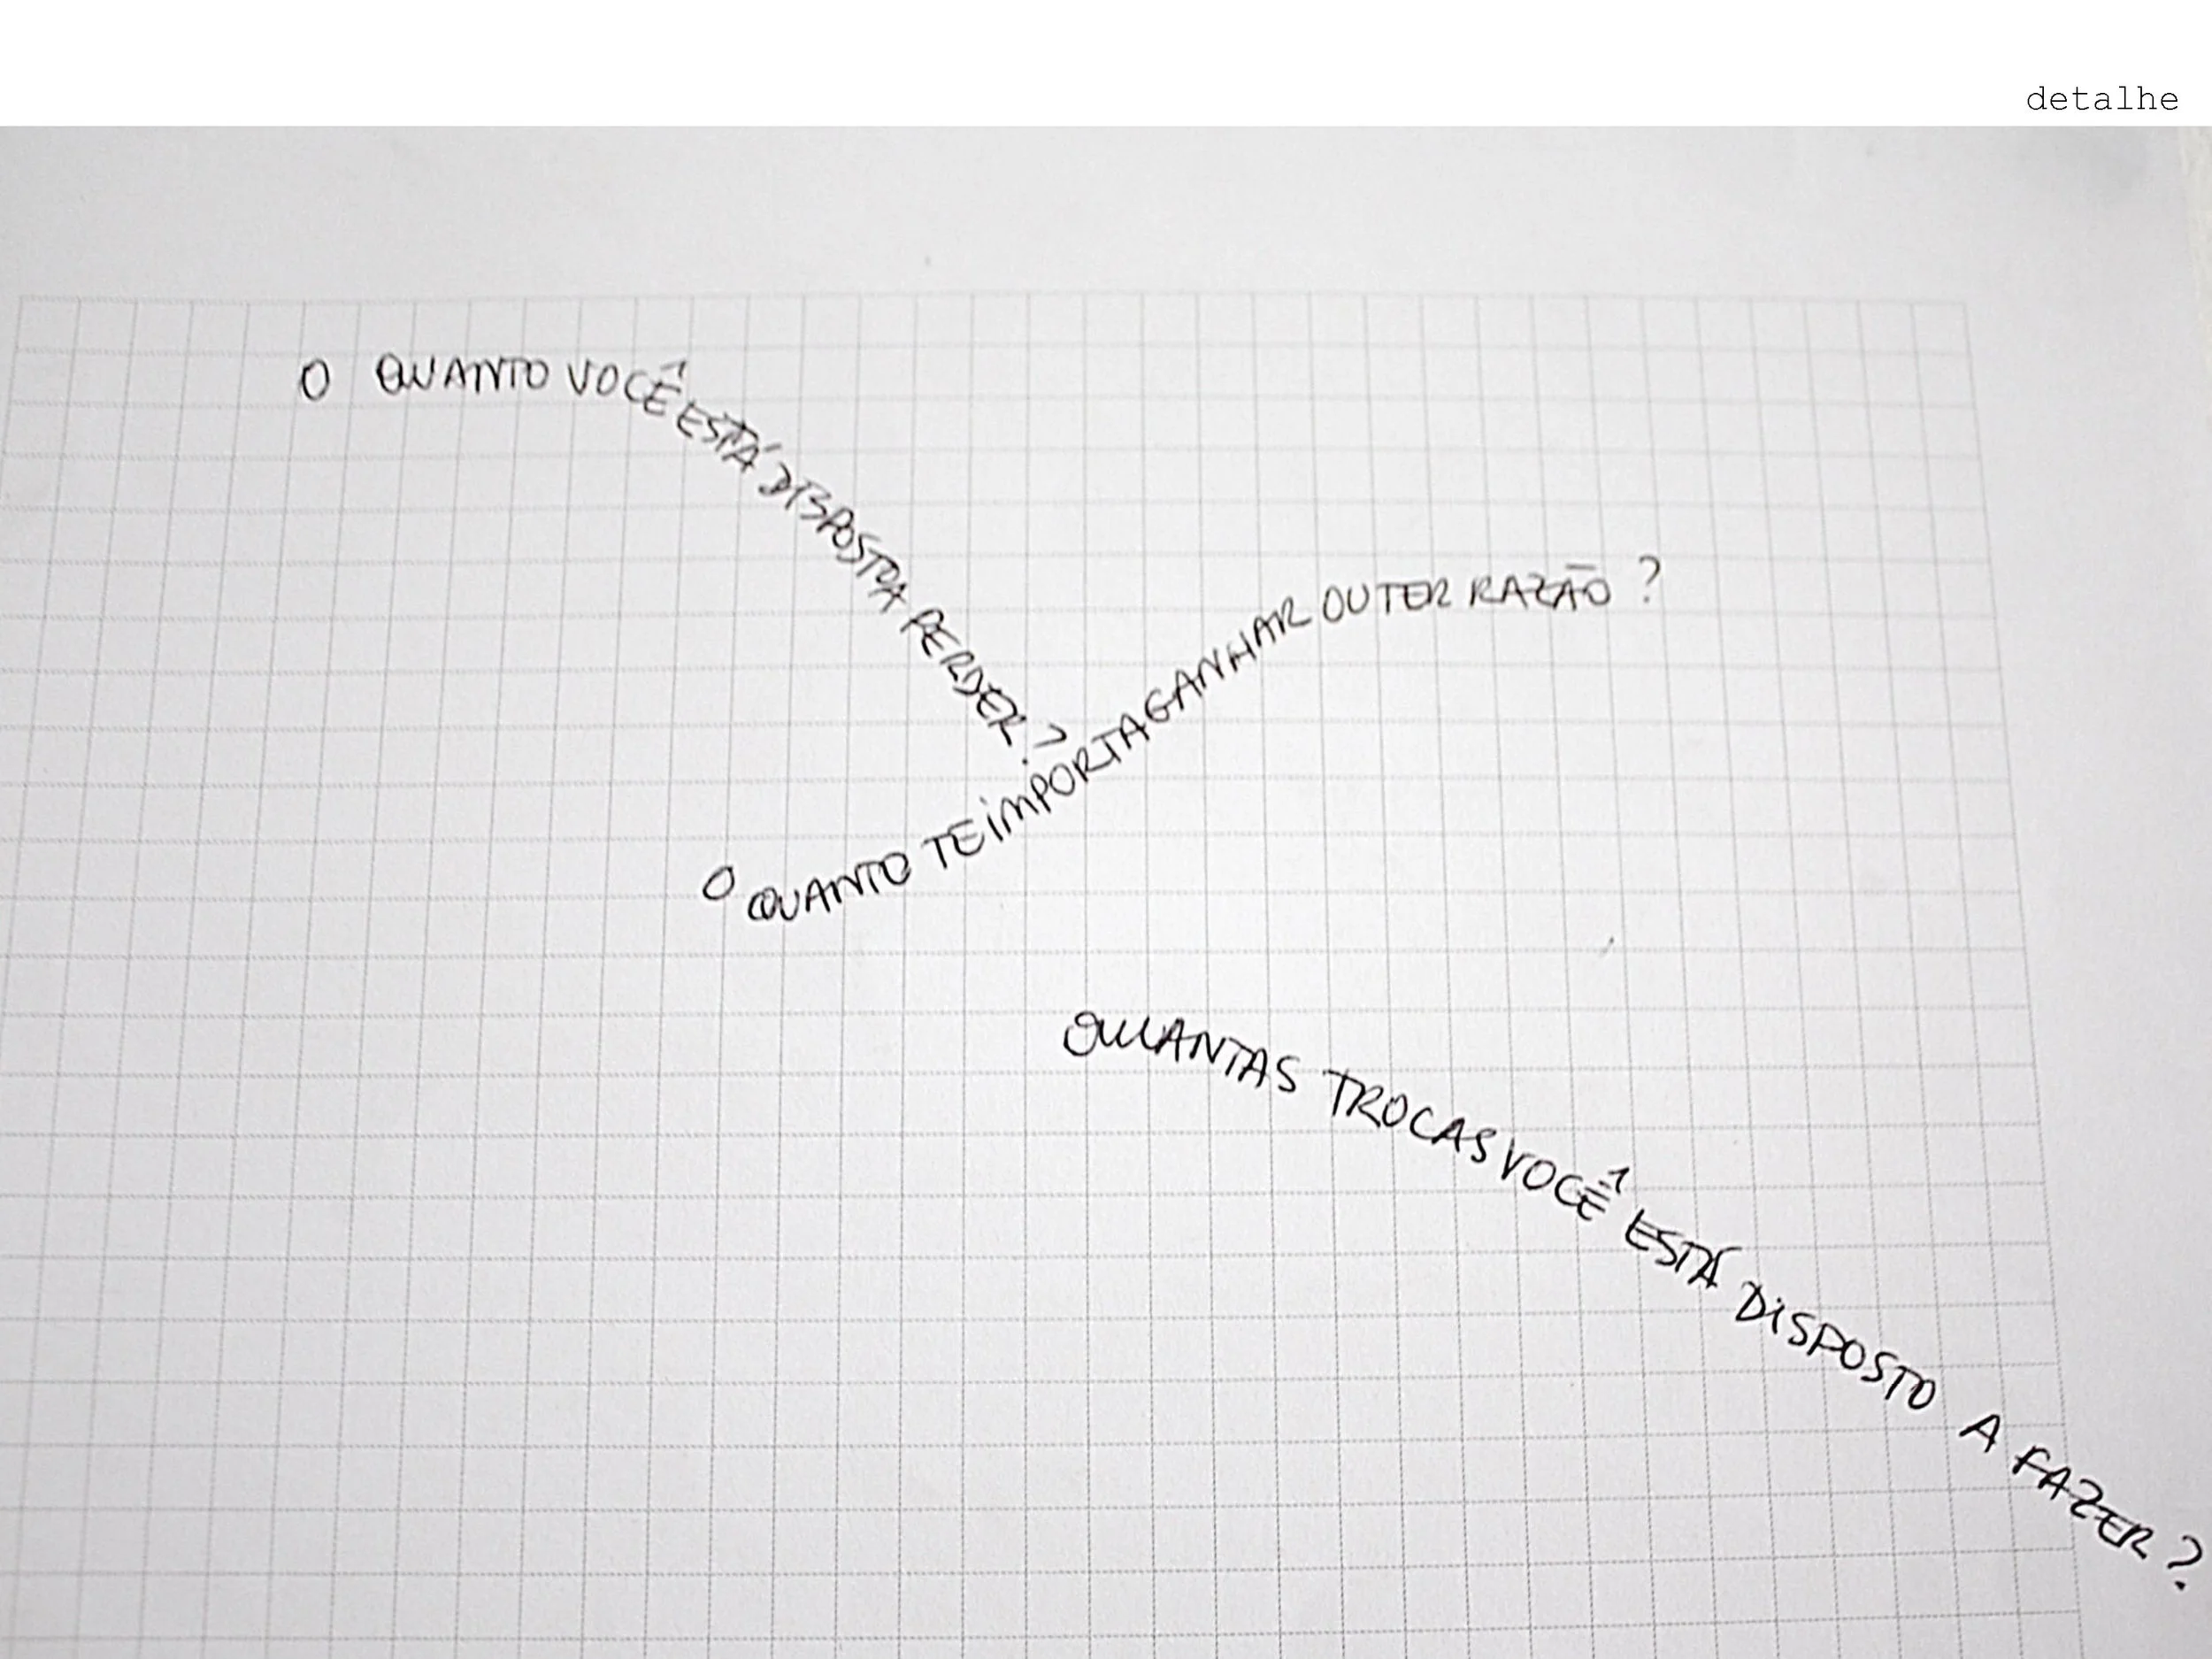 detalhe
O QUANTO VOCÊ ESTÁ DISPOSTO A PERDER?
O QUANTO TE IMPORTA GANHAR OU TER RAZÃO?
QUANTAS TROCAS VOCÊ ESTÁ DISPOSTO A FAZER?